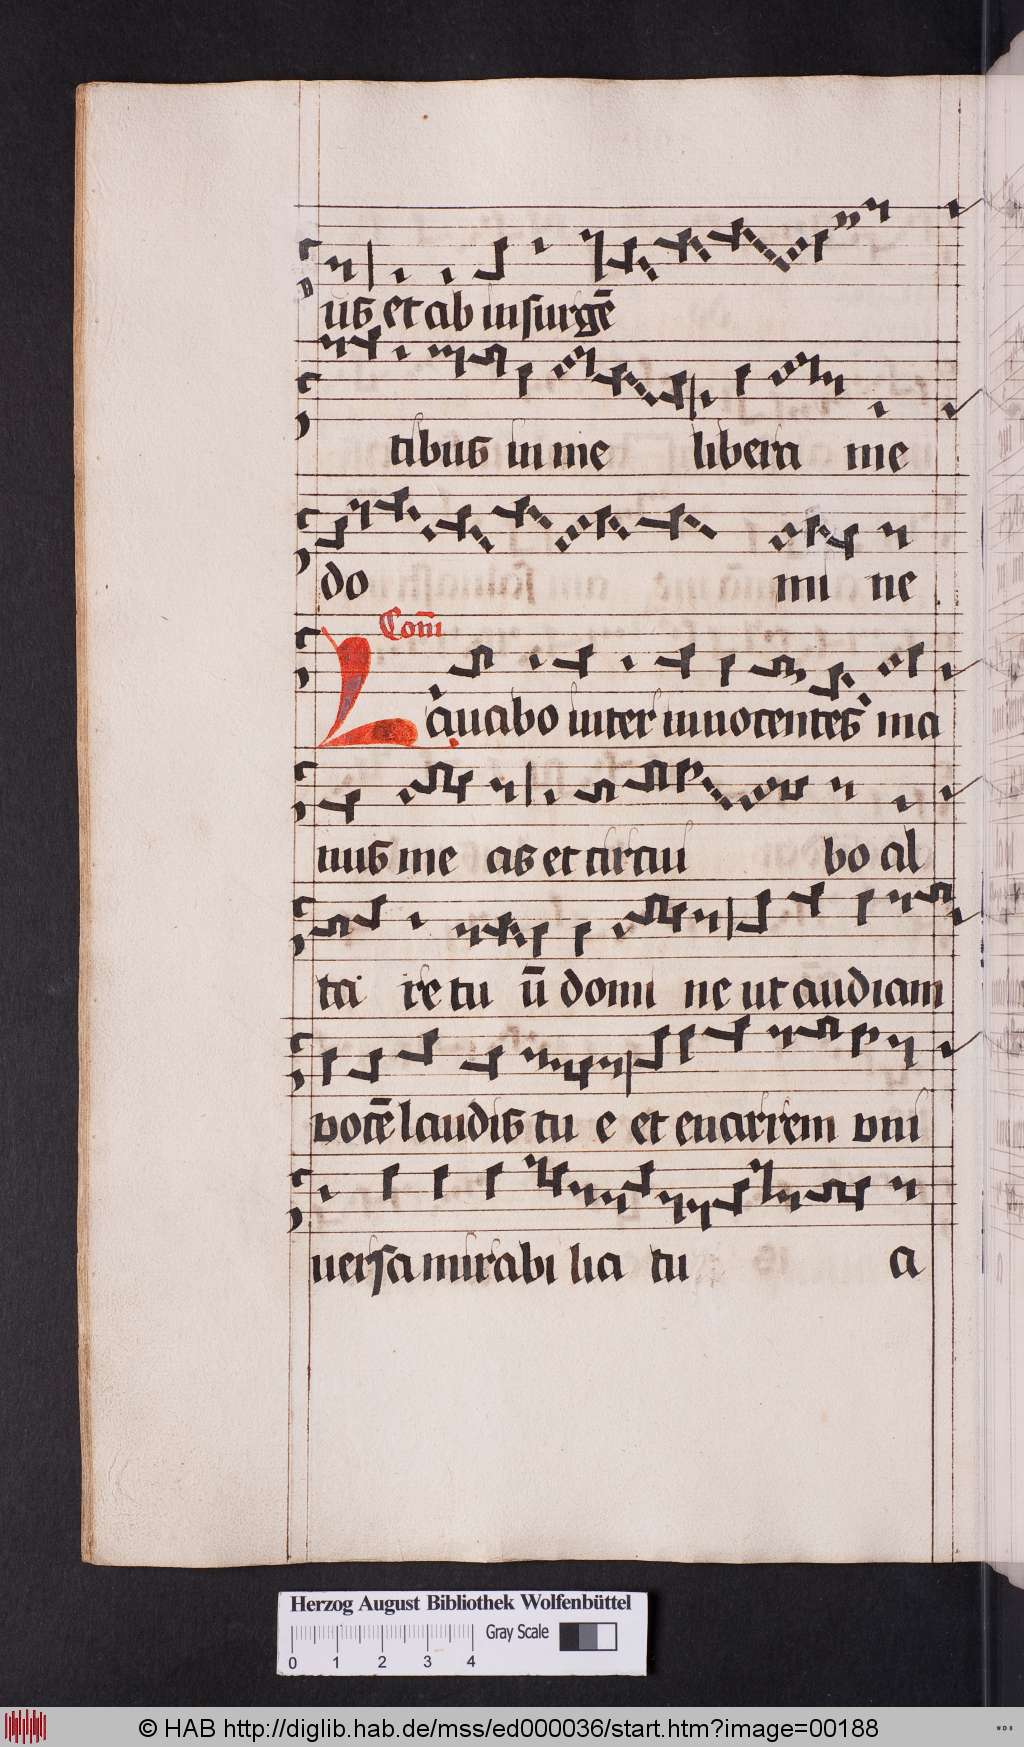 us et ab insurgē
tibus in me libera me
do mi ne
Com̄
Lauabo inter innocentes ma
nus me as et circui bo al
ta re tu ū domi ne ut audiam
vocē laudis tu e et enarrem vni
uersa mirabi lia tu a
Herzog August Bibliothek Wolfenbüttel
0 1 2 3 4 Gray Scale
© HAB http://diglib.hab.de/mss/ed000036/start.htm?image=00188